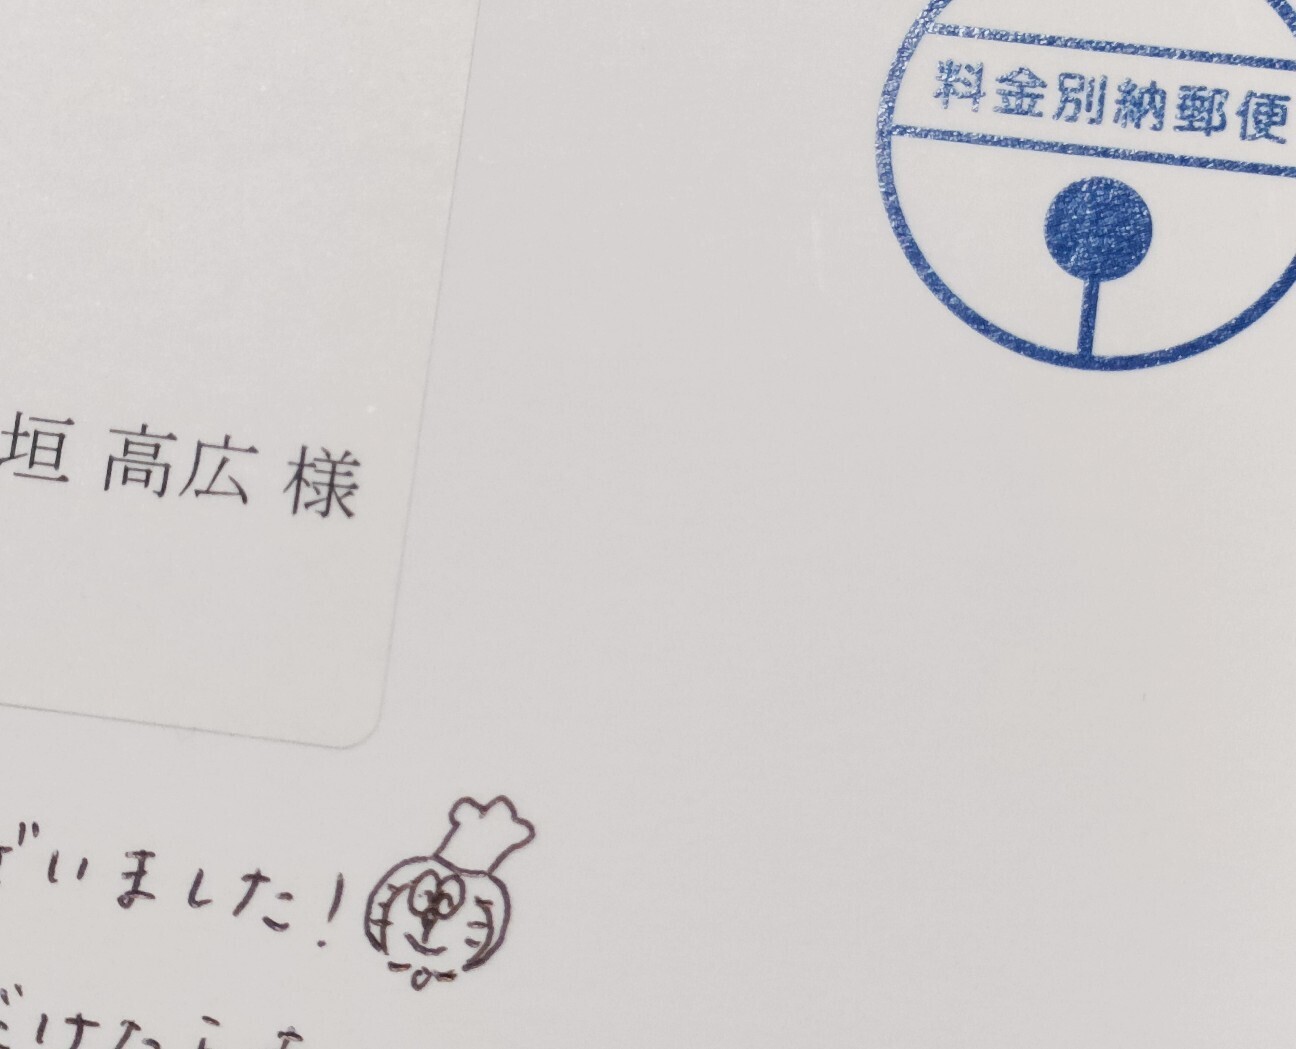 料金別納郵便
垣 高広 様
ざいました!
だけたら